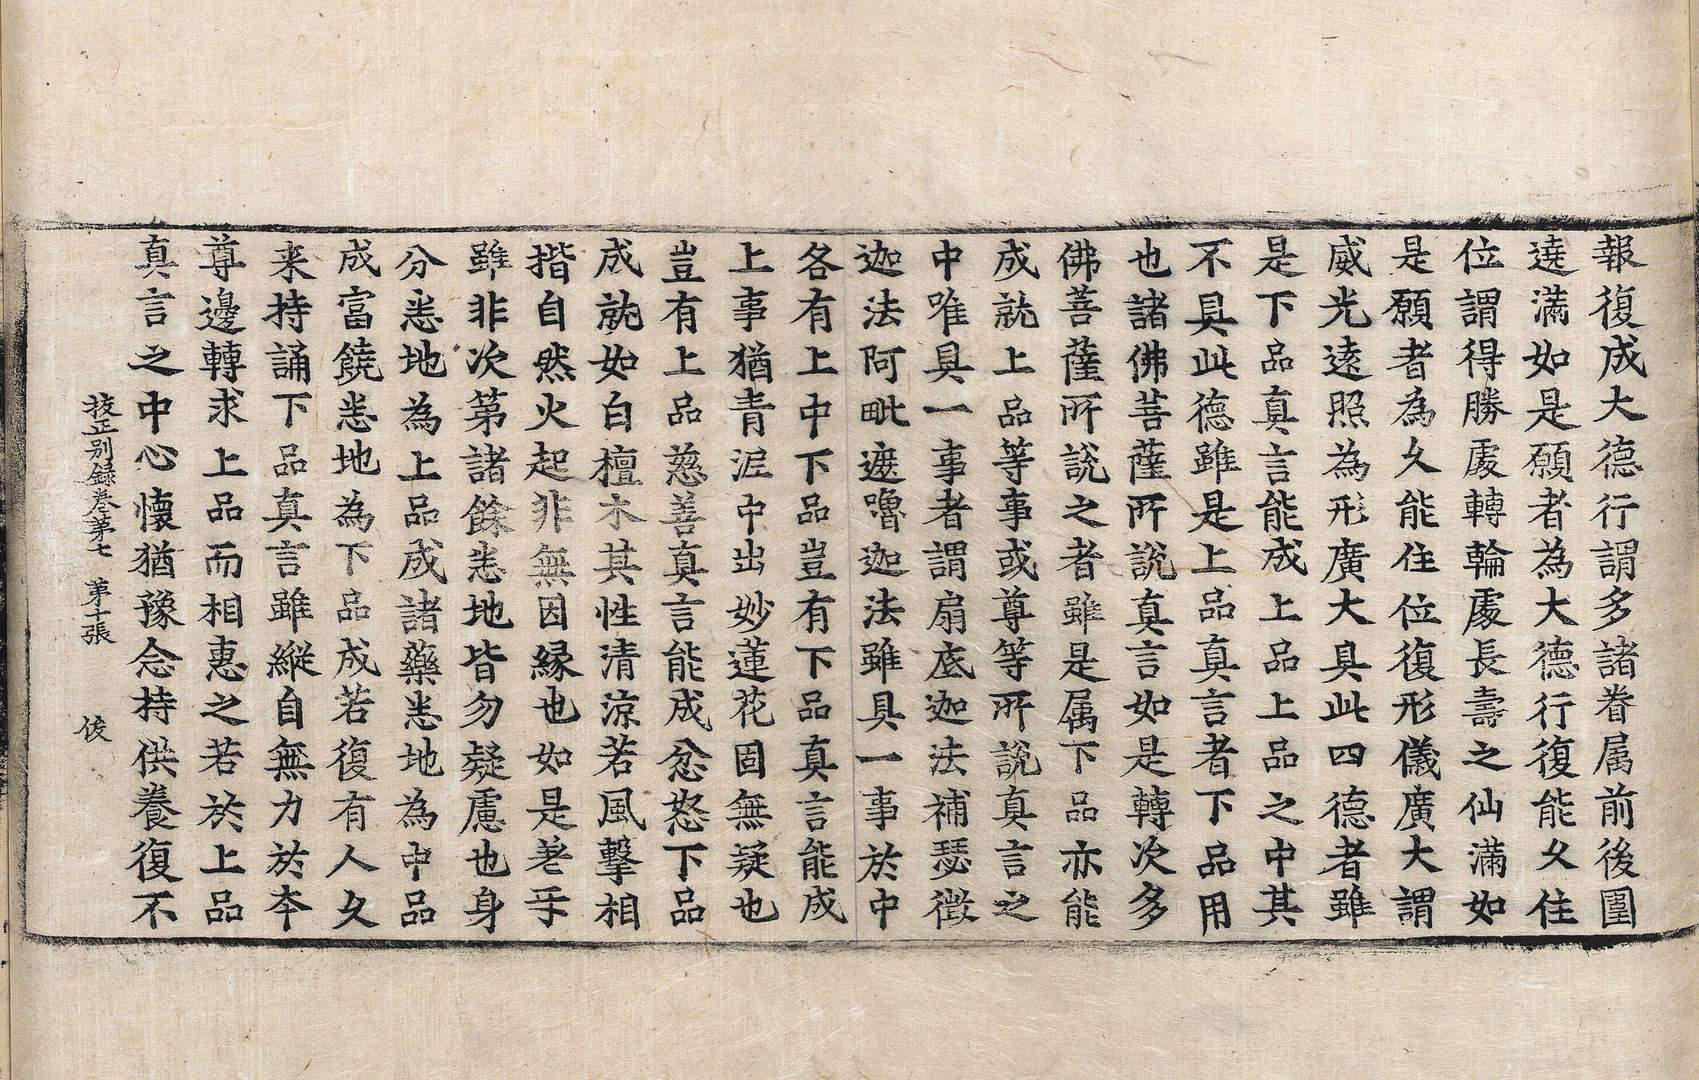 報復成大德行謂多諸眷属前後圍
遶滿如是願者為大德行復能久住
位謂得勝處轉輪處長壽之仙滿如
是願者為久能住位復形儀廣大謂
威光遠照為形廣大具此四德者雖
是下品真言能成上品上品之中其
不具此德雖是上品真言者下品用
也諸佛菩薩所說真言如是轉次多
佛菩薩所說之者雖是属下品亦能
成就上品等事或尊等所說真言之
中唯具一事者謂扇底迦法補瑟徵
迦法阿毗遮嚕迦法雖具一事於中
各有上中下品豈有下品真言能成
上事猶青泥中出妙蓮花固無疑也
豈有上品慈善真言能成忿怒下品
成就如白檀木其性清涼若風擊相
揩自然火起非無因緣也如是差乎
雖非次第諸餘悉地皆勿疑慮也身
分悉地為上品成諸藥悉地為中品
成富饒悉地為下品成若復有人久
来持誦下品真言雖縱自無力於本
尊邊轉求上品而相惠之若於上品
真言之中心懷猶豫念持供養復不
挍正别錄卷第七 第十張 俊